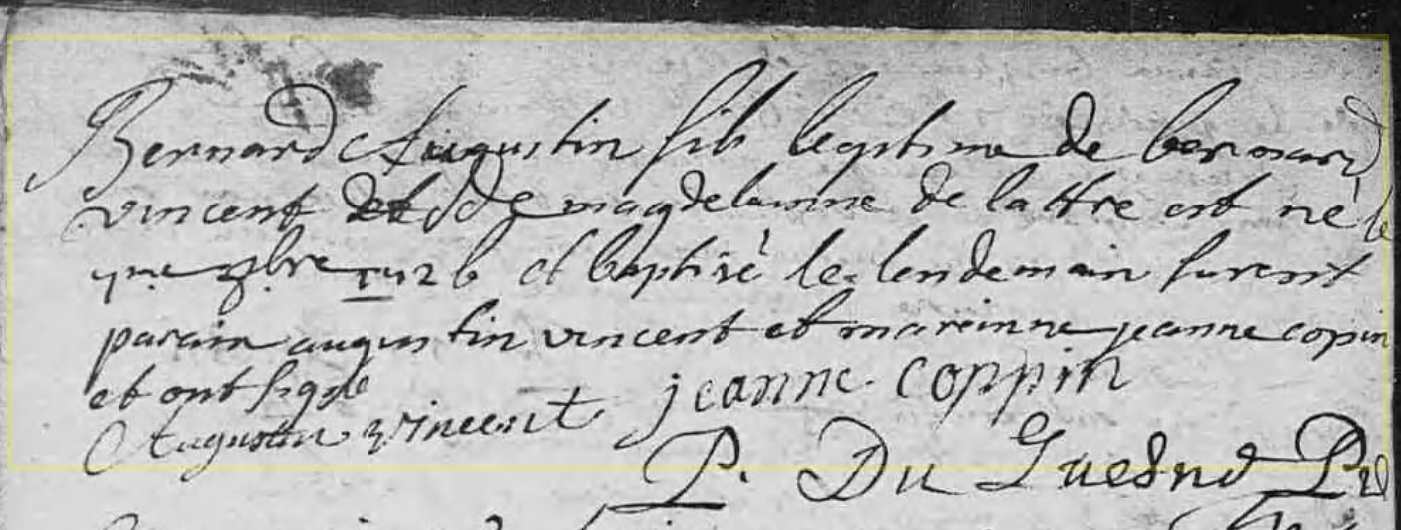 Bernard Augustin fils legitime de bernard
vincent et de magdelainne de lattre est né le
9me 7bre 1726 et baptisé le lendemain furent
parain augustin vincent et marainne jeanne copin
et ont signé
Augustin vincent jeanne coppin
P. Du